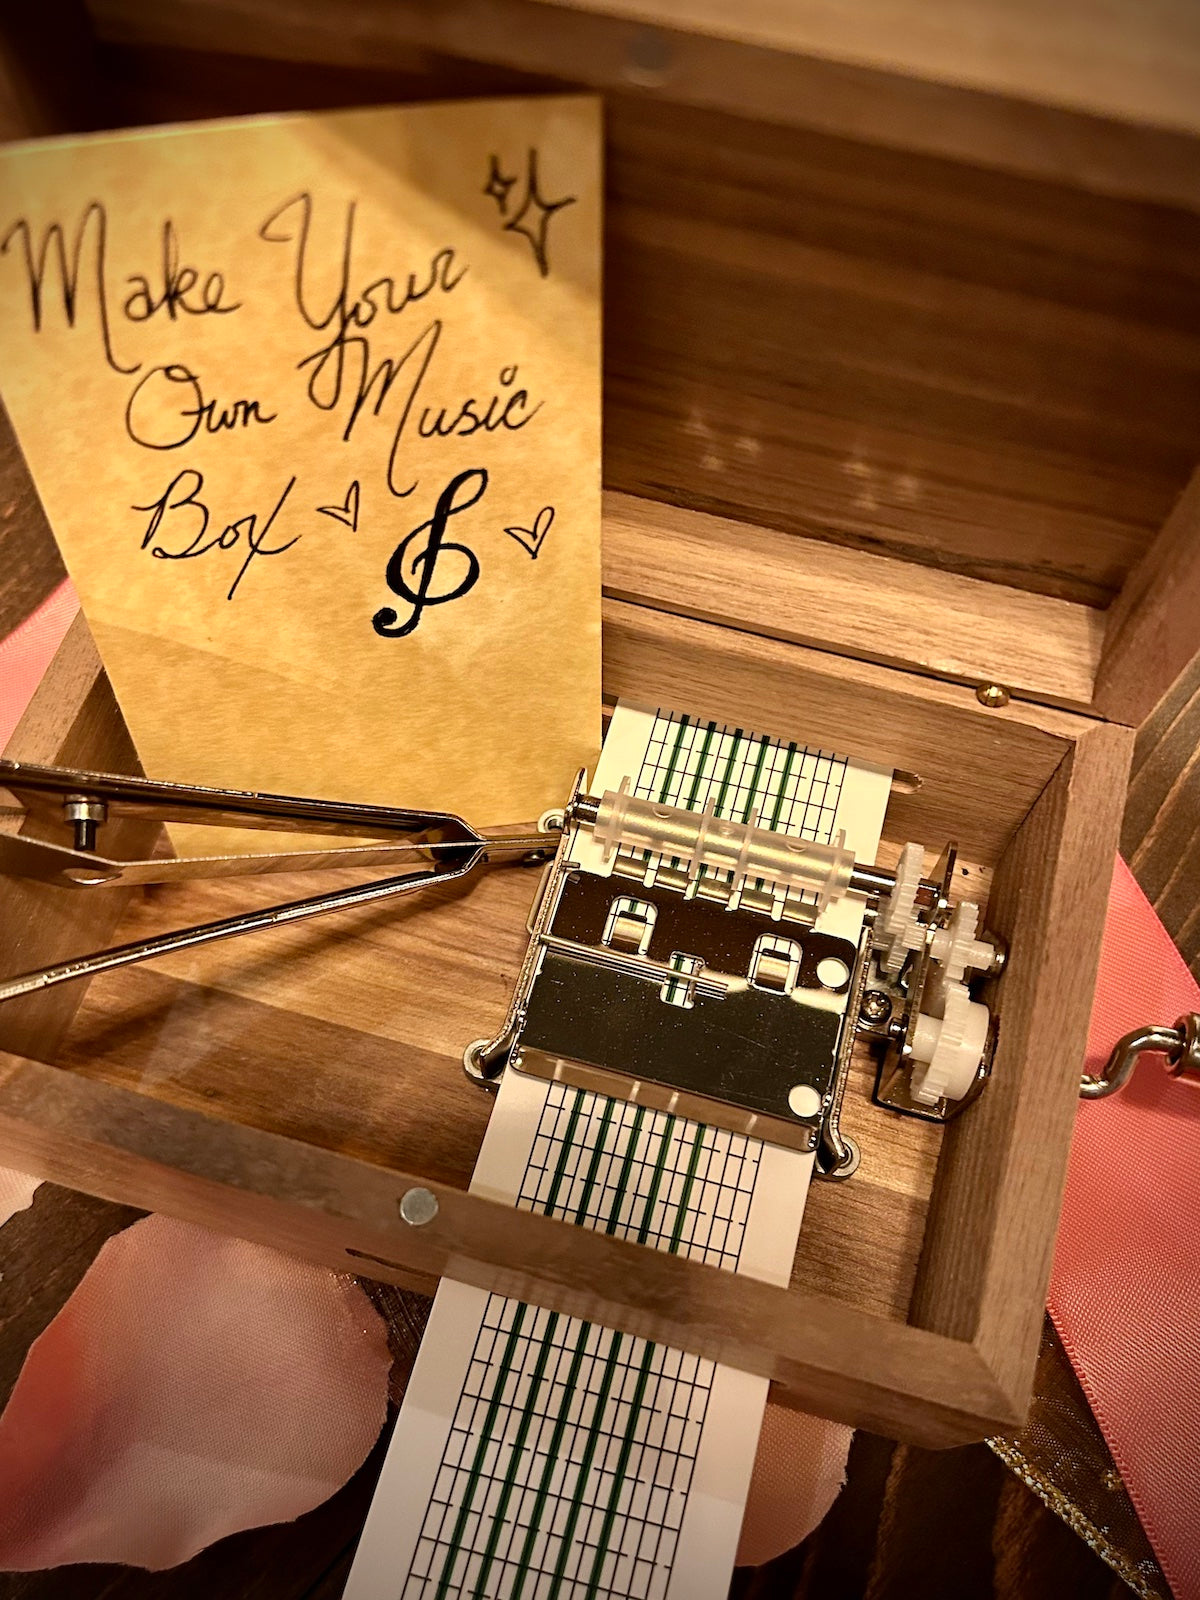 Make Your
Own Music
Box